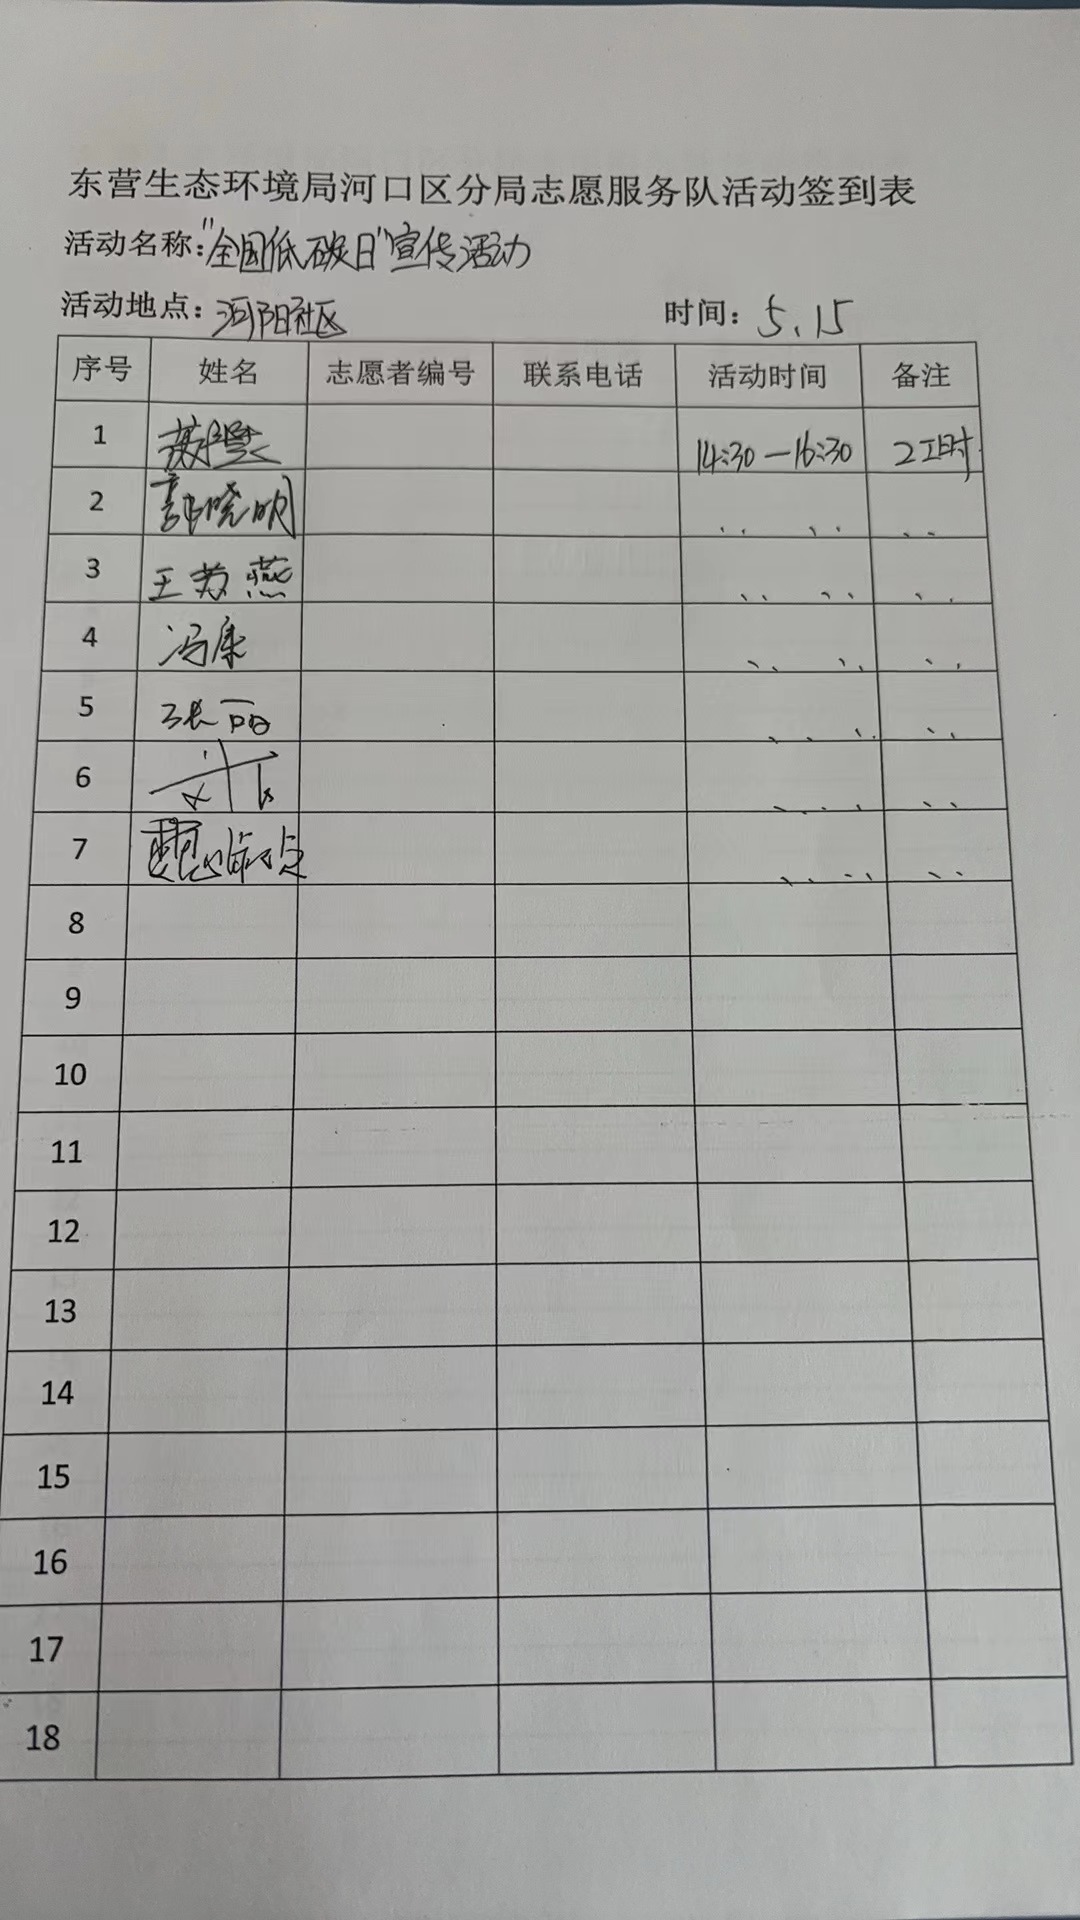 东营生态环境局河口区分局志愿服务队活动签到表
活动名称："全国低碳日"宣传活动
活动地点：河阳社区 时间：5.15
序号 姓名 志愿者编号 联系电话 活动时间 备注
1 14:30—16:30 2工时
2 郭晓明 〃 〃 〃
3 王苏燕 〃 〃 〃
4 冯康 〃 〃 〃
5 张丽 〃 〃 〃
6 〃 〃 〃
7 〃 〃 〃
8
9
10
11
12
13
14
15
16
17
18